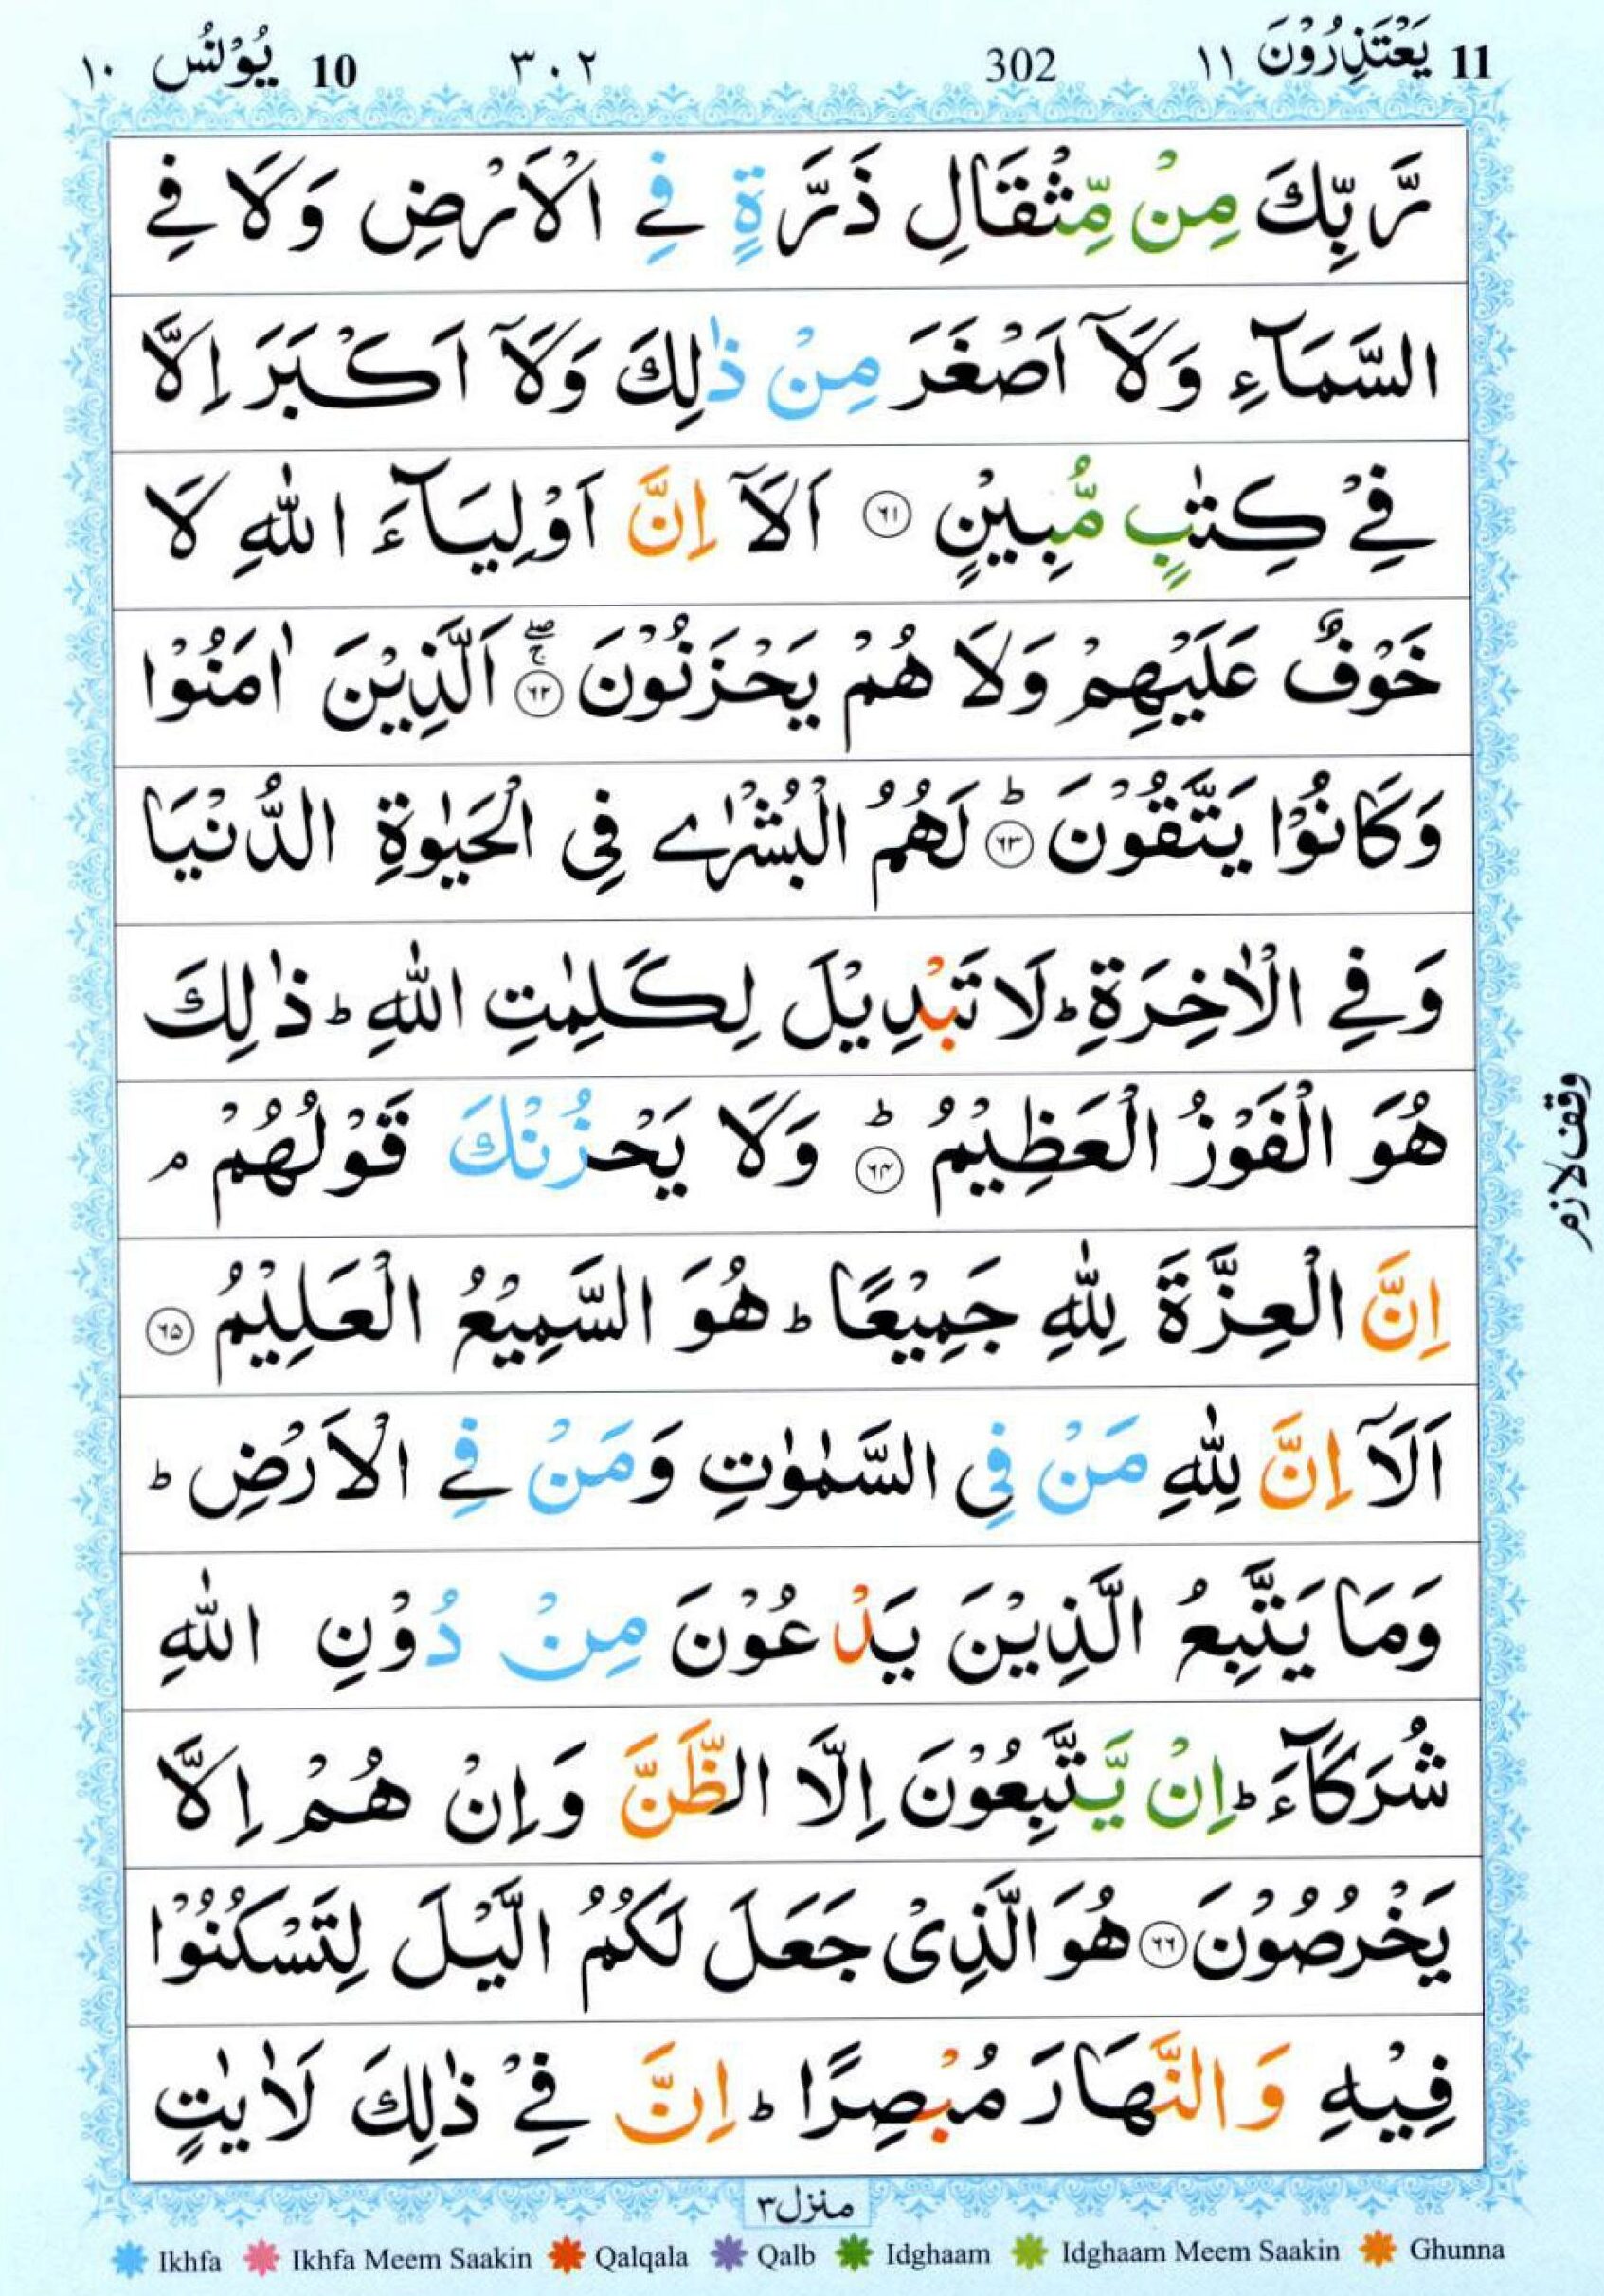 11 يَعْتَذِرُوْنَ ١١ 302 ٣٠٢ 10 يُوْنُس ١٠
رَّبِّكَ مِنْ مِّثْقَالِ ذَرَّةٍ فِي الْاَرْضِ وَلَا فِي
السَّمَآءِ وَلَآ اَصْغَرَ مِنْ ذٰلِكَ وَلَآ اَكْبَرَ اِلَّا
فِيْ كِتٰبٍ مُّبِيْنٍ ۝٦١ اَلَآ اِنَّ اَوْلِيَآءَ اللّٰهِ لَا
خَوْفٌ عَلَيْهِمْ وَلَا هُمْ يَحْزَنُوْنَ ۝٦٢ۚۖ اَلَّذِيْنَ اٰمَنُوْا
وَكَانُوْا يَتَّقُوْنَ ۝٦٣ؕ لَهُمُ الْبُشْرٰے فِي الْحَيٰوةِ الدُّنْيَا
وَفِي الْاٰخِرَةِ ؕ لَا تَبْدِيْلَ لِكَلِمٰتِ اللّٰهِ ؕ ذٰلِكَ
هُوَ الْفَوْزُ الْعَظِيْمُ ۝٦٤ؕ وَلَا يَحْزُنْكَ قَوْلُهُمْ ۘ
وقف لازم
اِنَّ الْعِزَّةَ لِلّٰهِ جَمِيْعًا ؕ هُوَ السَّمِيْعُ الْعَلِيْمُ ۝٦٥
اَلَآ اِنَّ لِلّٰهِ مَنْ فِي السَّمٰوٰتِ وَمَنْ فِي الْاَرْضِ ؕ
وَمَا يَتَّبِعُ الَّذِيْنَ يَدْعُوْنَ مِنْ دُوْنِ اللّٰهِ
شُرَكَآءَ ؕ اِنْ يَّتَّبِعُوْنَ اِلَّا الظَّنَّ وَاِنْ هُمْ اِلَّا
يَخْرُصُوْنَ ۝٦٦ هُوَ الَّذِيْ جَعَلَ لَكُمُ الَّيْلَ لِتَسْكُنُوْا
فِيْهِ وَالنَّهَارَ مُبْصِرًا ؕ اِنَّ فِيْ ذٰلِكَ لَاٰيٰتٍ
منزل ٣
Ikhfa Ikhfa Meem Saakin Qalqala Qalb Idghaam Idghaam Meem Saakin Ghunna